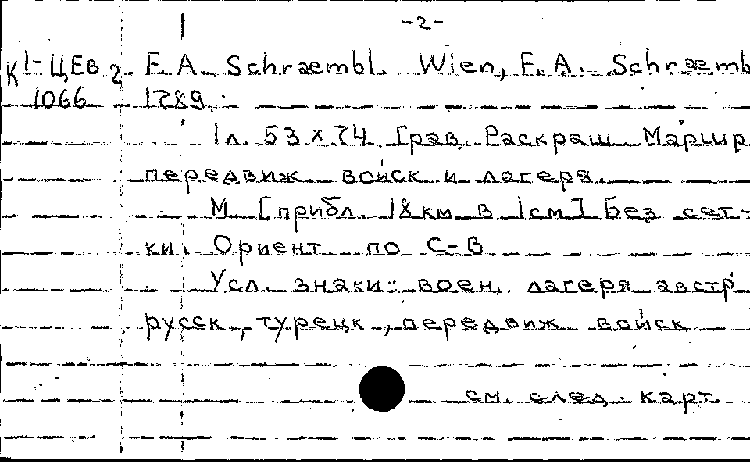 -2-
К 1-ЦЕв 2 F. A. Schraembl. Wien, F. A. Schraemb
1066 1789.
1 л. 53 х 74 Грав. Раскраш. Маршр
передвиж. войск и лагеря.
М [прибл. 18 км в 1 см] Без сет-
ки. Ориент. по С-В
Усл. знаки: воен. лагеря австр
русск., турецк., передвиж. войск
см. след. карт.